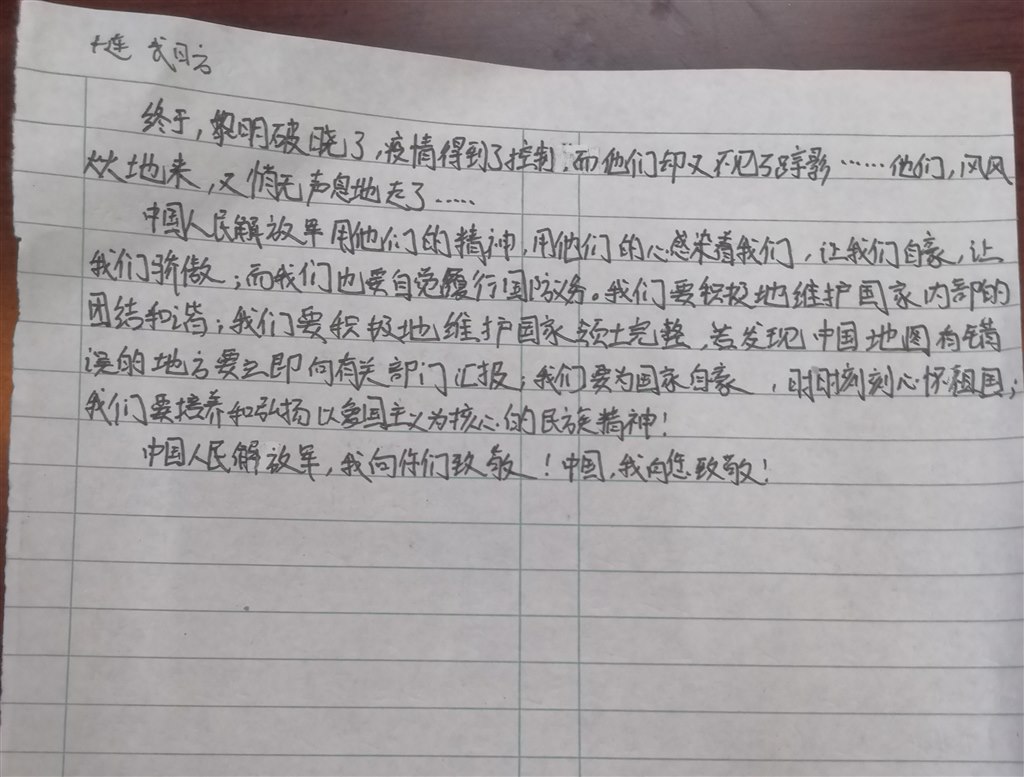 十连 武日方
终于，黎明破晓了，疫情得到了控制，而他们却又不见了踪影……他们，风风
火火地来，又悄无声息地走了……
中国人民解放军用他们的精神，用他们的心感染着我们，让我们自豪，让
我们骄傲；而我们也要自觉履行国防义务。我们要积极地维护国家内部的
团结和谐；我们要积极地维护国家领土完整，若发现中国地图有错
误的地方要立即向有关部门汇报；我们要为国家自豪，时时刻刻心怀祖国；
我们要培养和弘扬以爱国主义为核心的民族精神！
中国人民解放军，我向你们致敬！中国，我向您致敬！